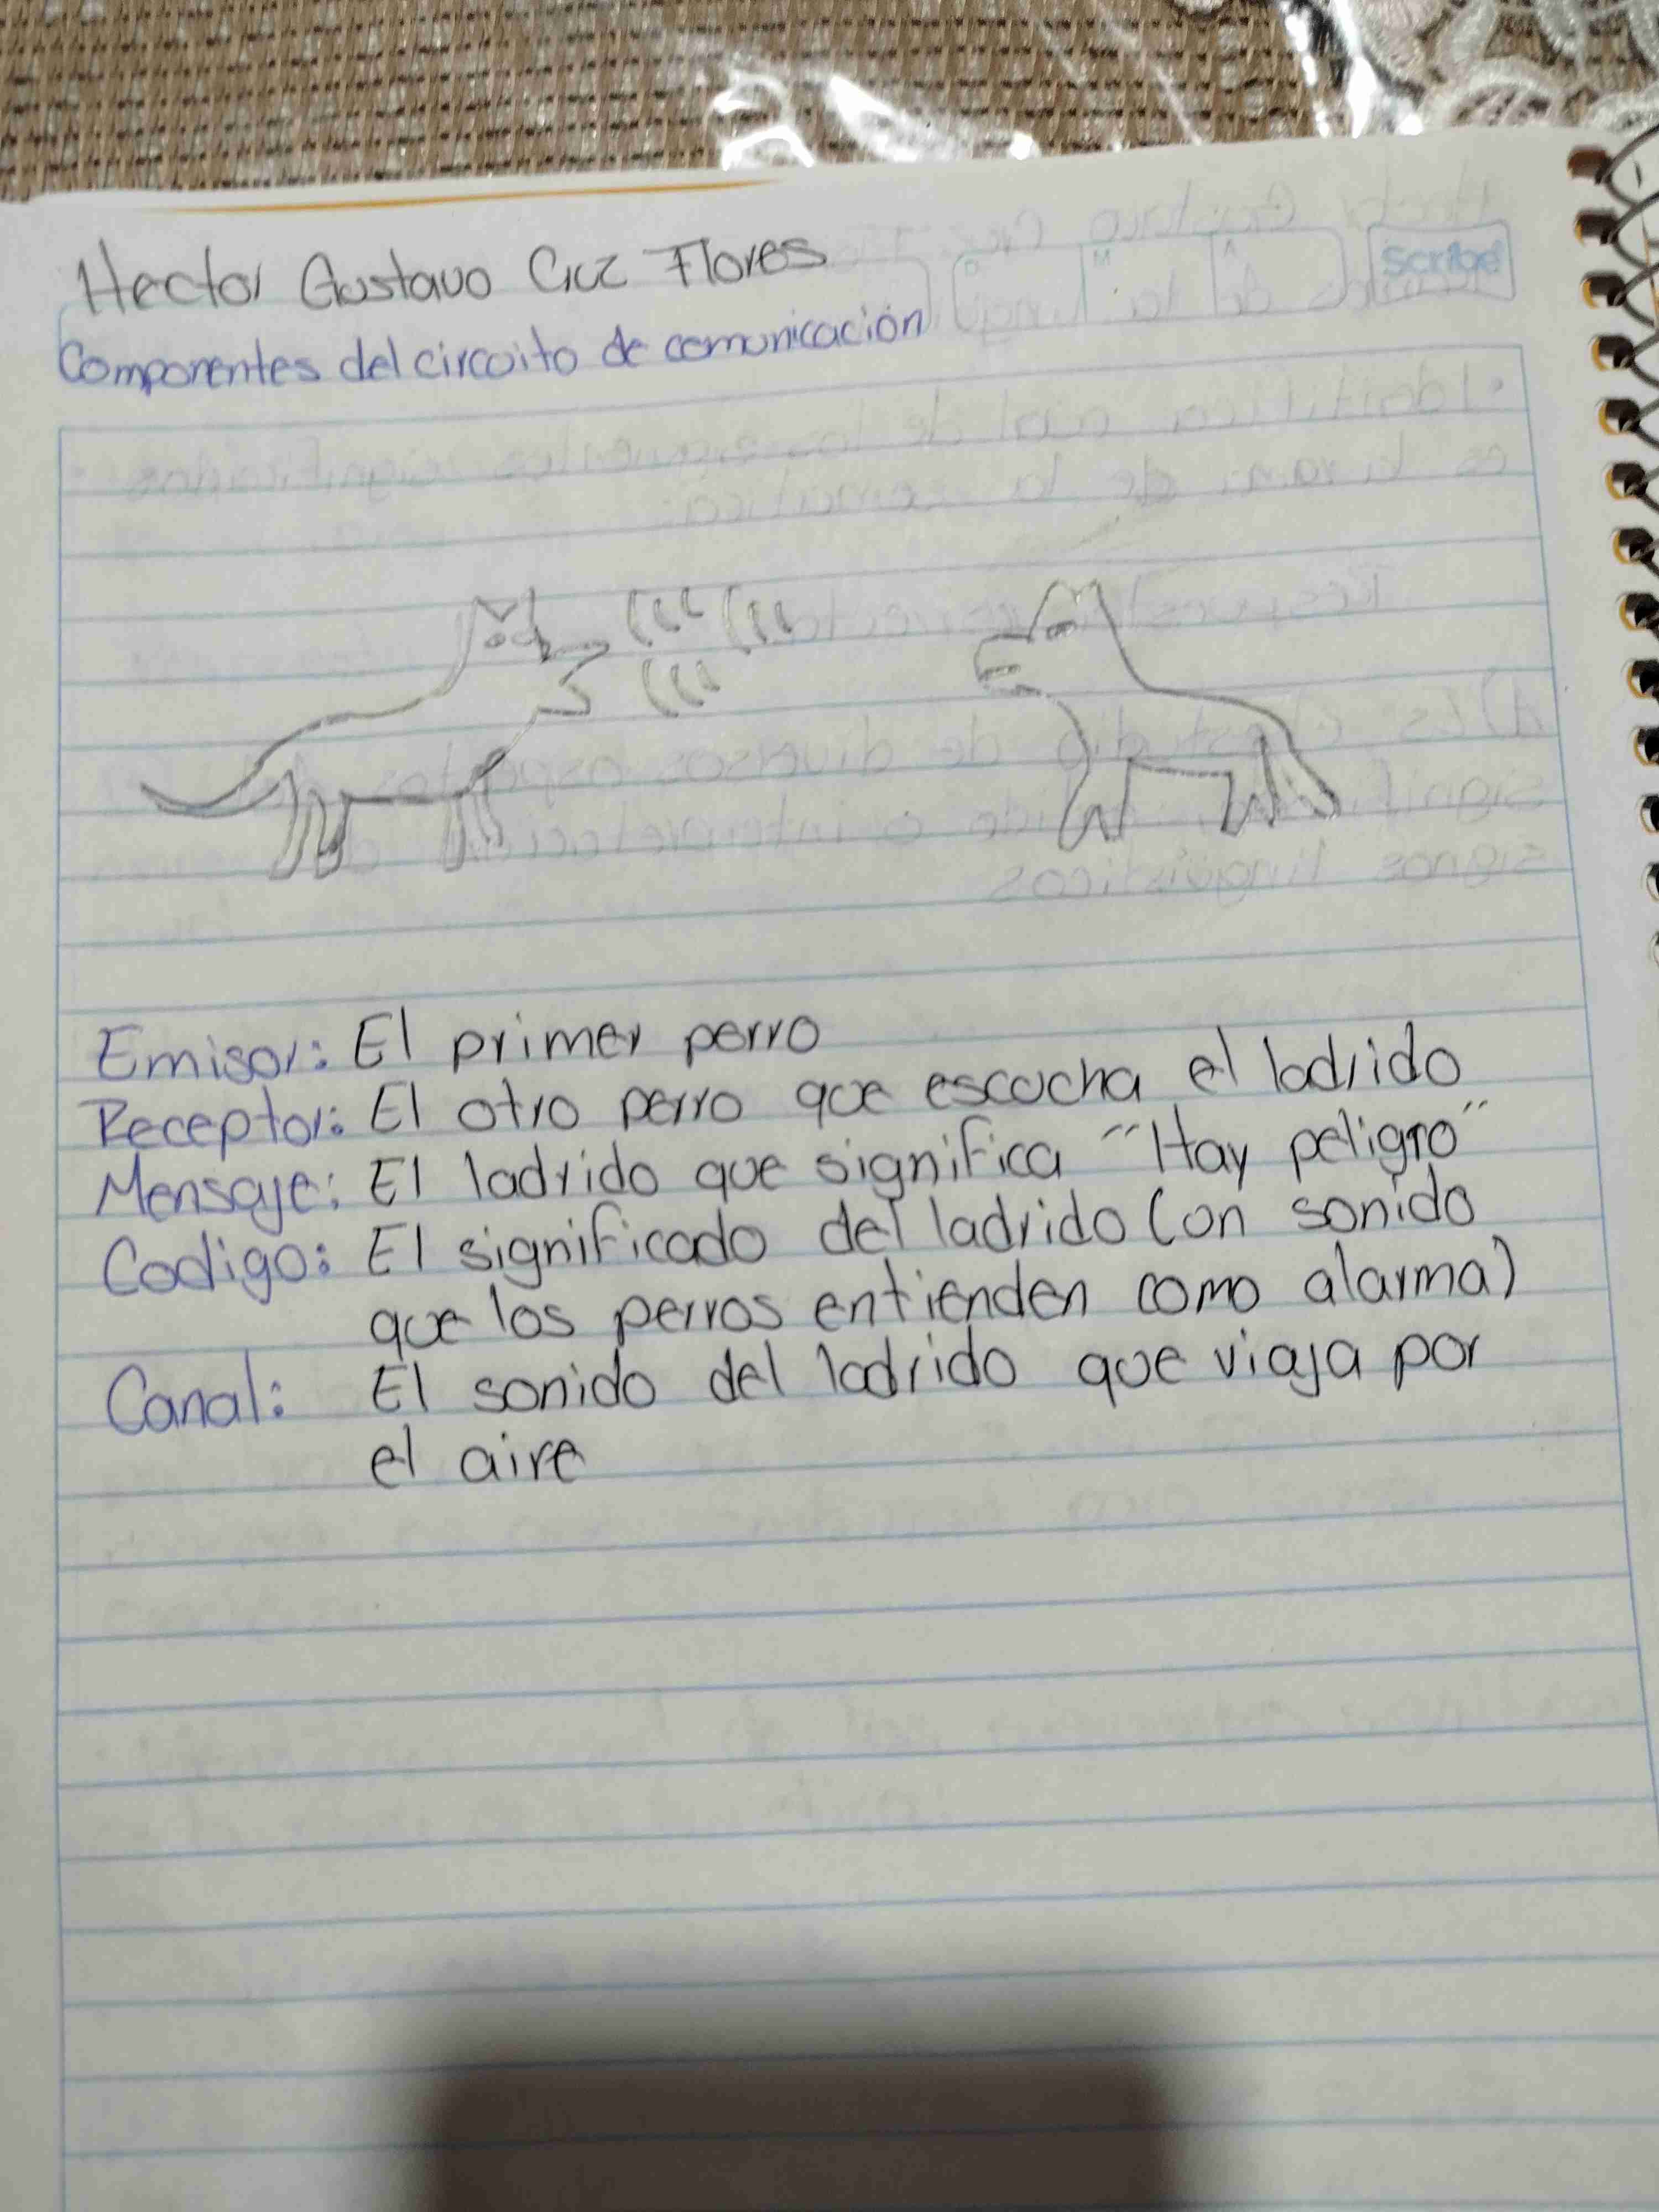 Hector Gustavo Cruz Flores
Scribe
D M A
Componentes del circuito de comunicación
Emisor: El primer perro
Receptor: El otro perro que escucha el ladrido
Mensaje: El ladrido que significa "Hay peligro"
Codigo: El significado del ladrido (un sonido
que los perros entienden como alarma)
Canal: El sonido del ladrido que viaja por
el aire